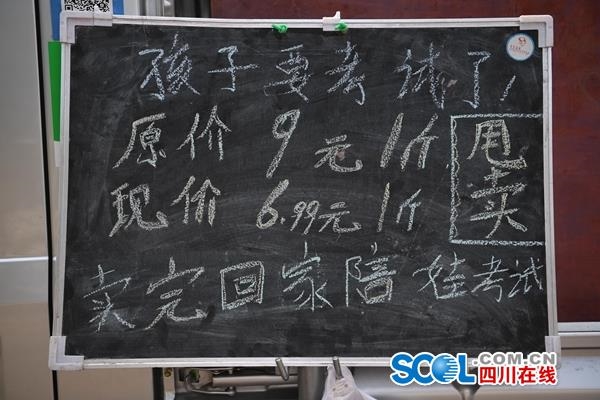 孩子要考试了!
原价 9元1斤
现价 6.99元1斤
甩卖
卖完回家陪娃考试
SCOL.COM.CN
四川在线